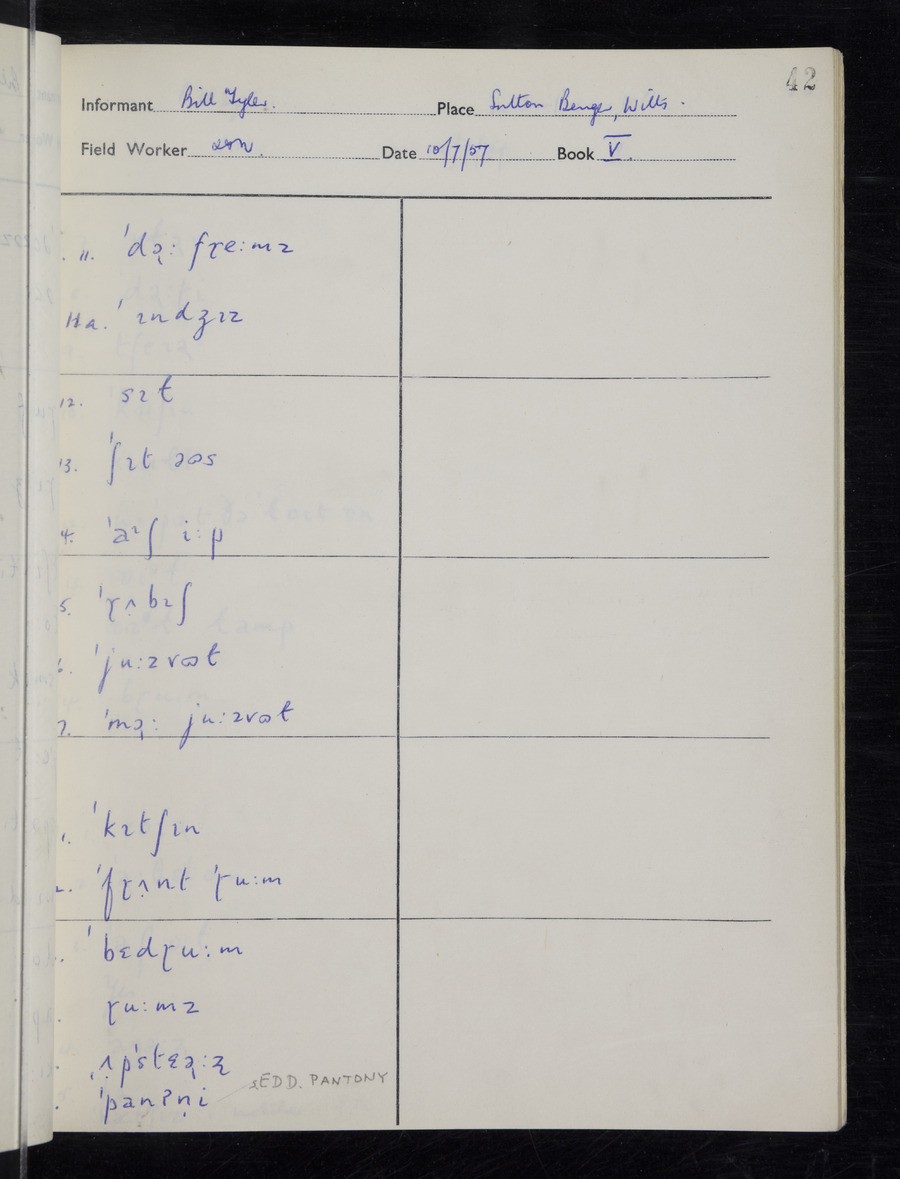 42
Informant Bill Tyler. Place Sutton Benger, Wilts.
Field Worker Date 10/7/57 Book V.
11. ˈdɚ: fɽe:mz
11a. ˈɪndʒɪz
12. sɪt
13. ˈʃɪt əʊs
4. ˈaˡʃ i:p
5. ˈɽʌbɪʃ
6. ˈju:zvʊt
7. ˈmɚ: ju:zvʊt
1. ˈkɪtʃɪn
2. ˈfɽʌnt ˈɽu:m
ˈbɛdɽu:m
ɽu:mz
ˌʌpˈstɛɚ:ʐ
ˈpanʔn̩i sEDD. PANTONY